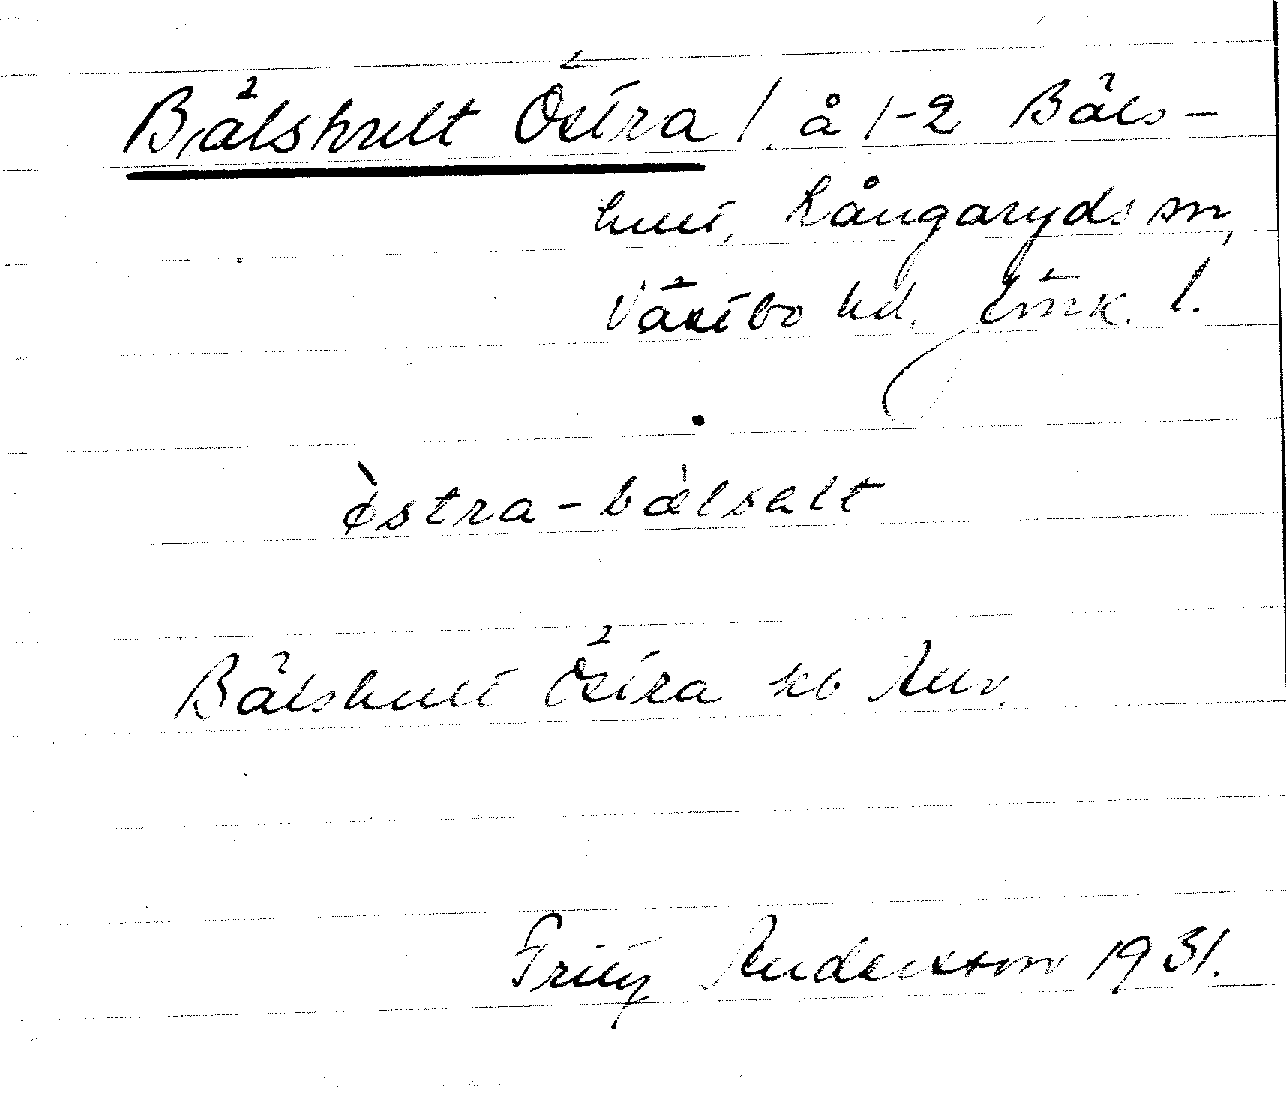 Bälshult Östra / å 1-2 Bäls-
hult, Långaryds sn,
Västbo hd. Jönk. l.
òstra-bàlsalt
Bälshult Östra kb
Fritz Andersson 1931.